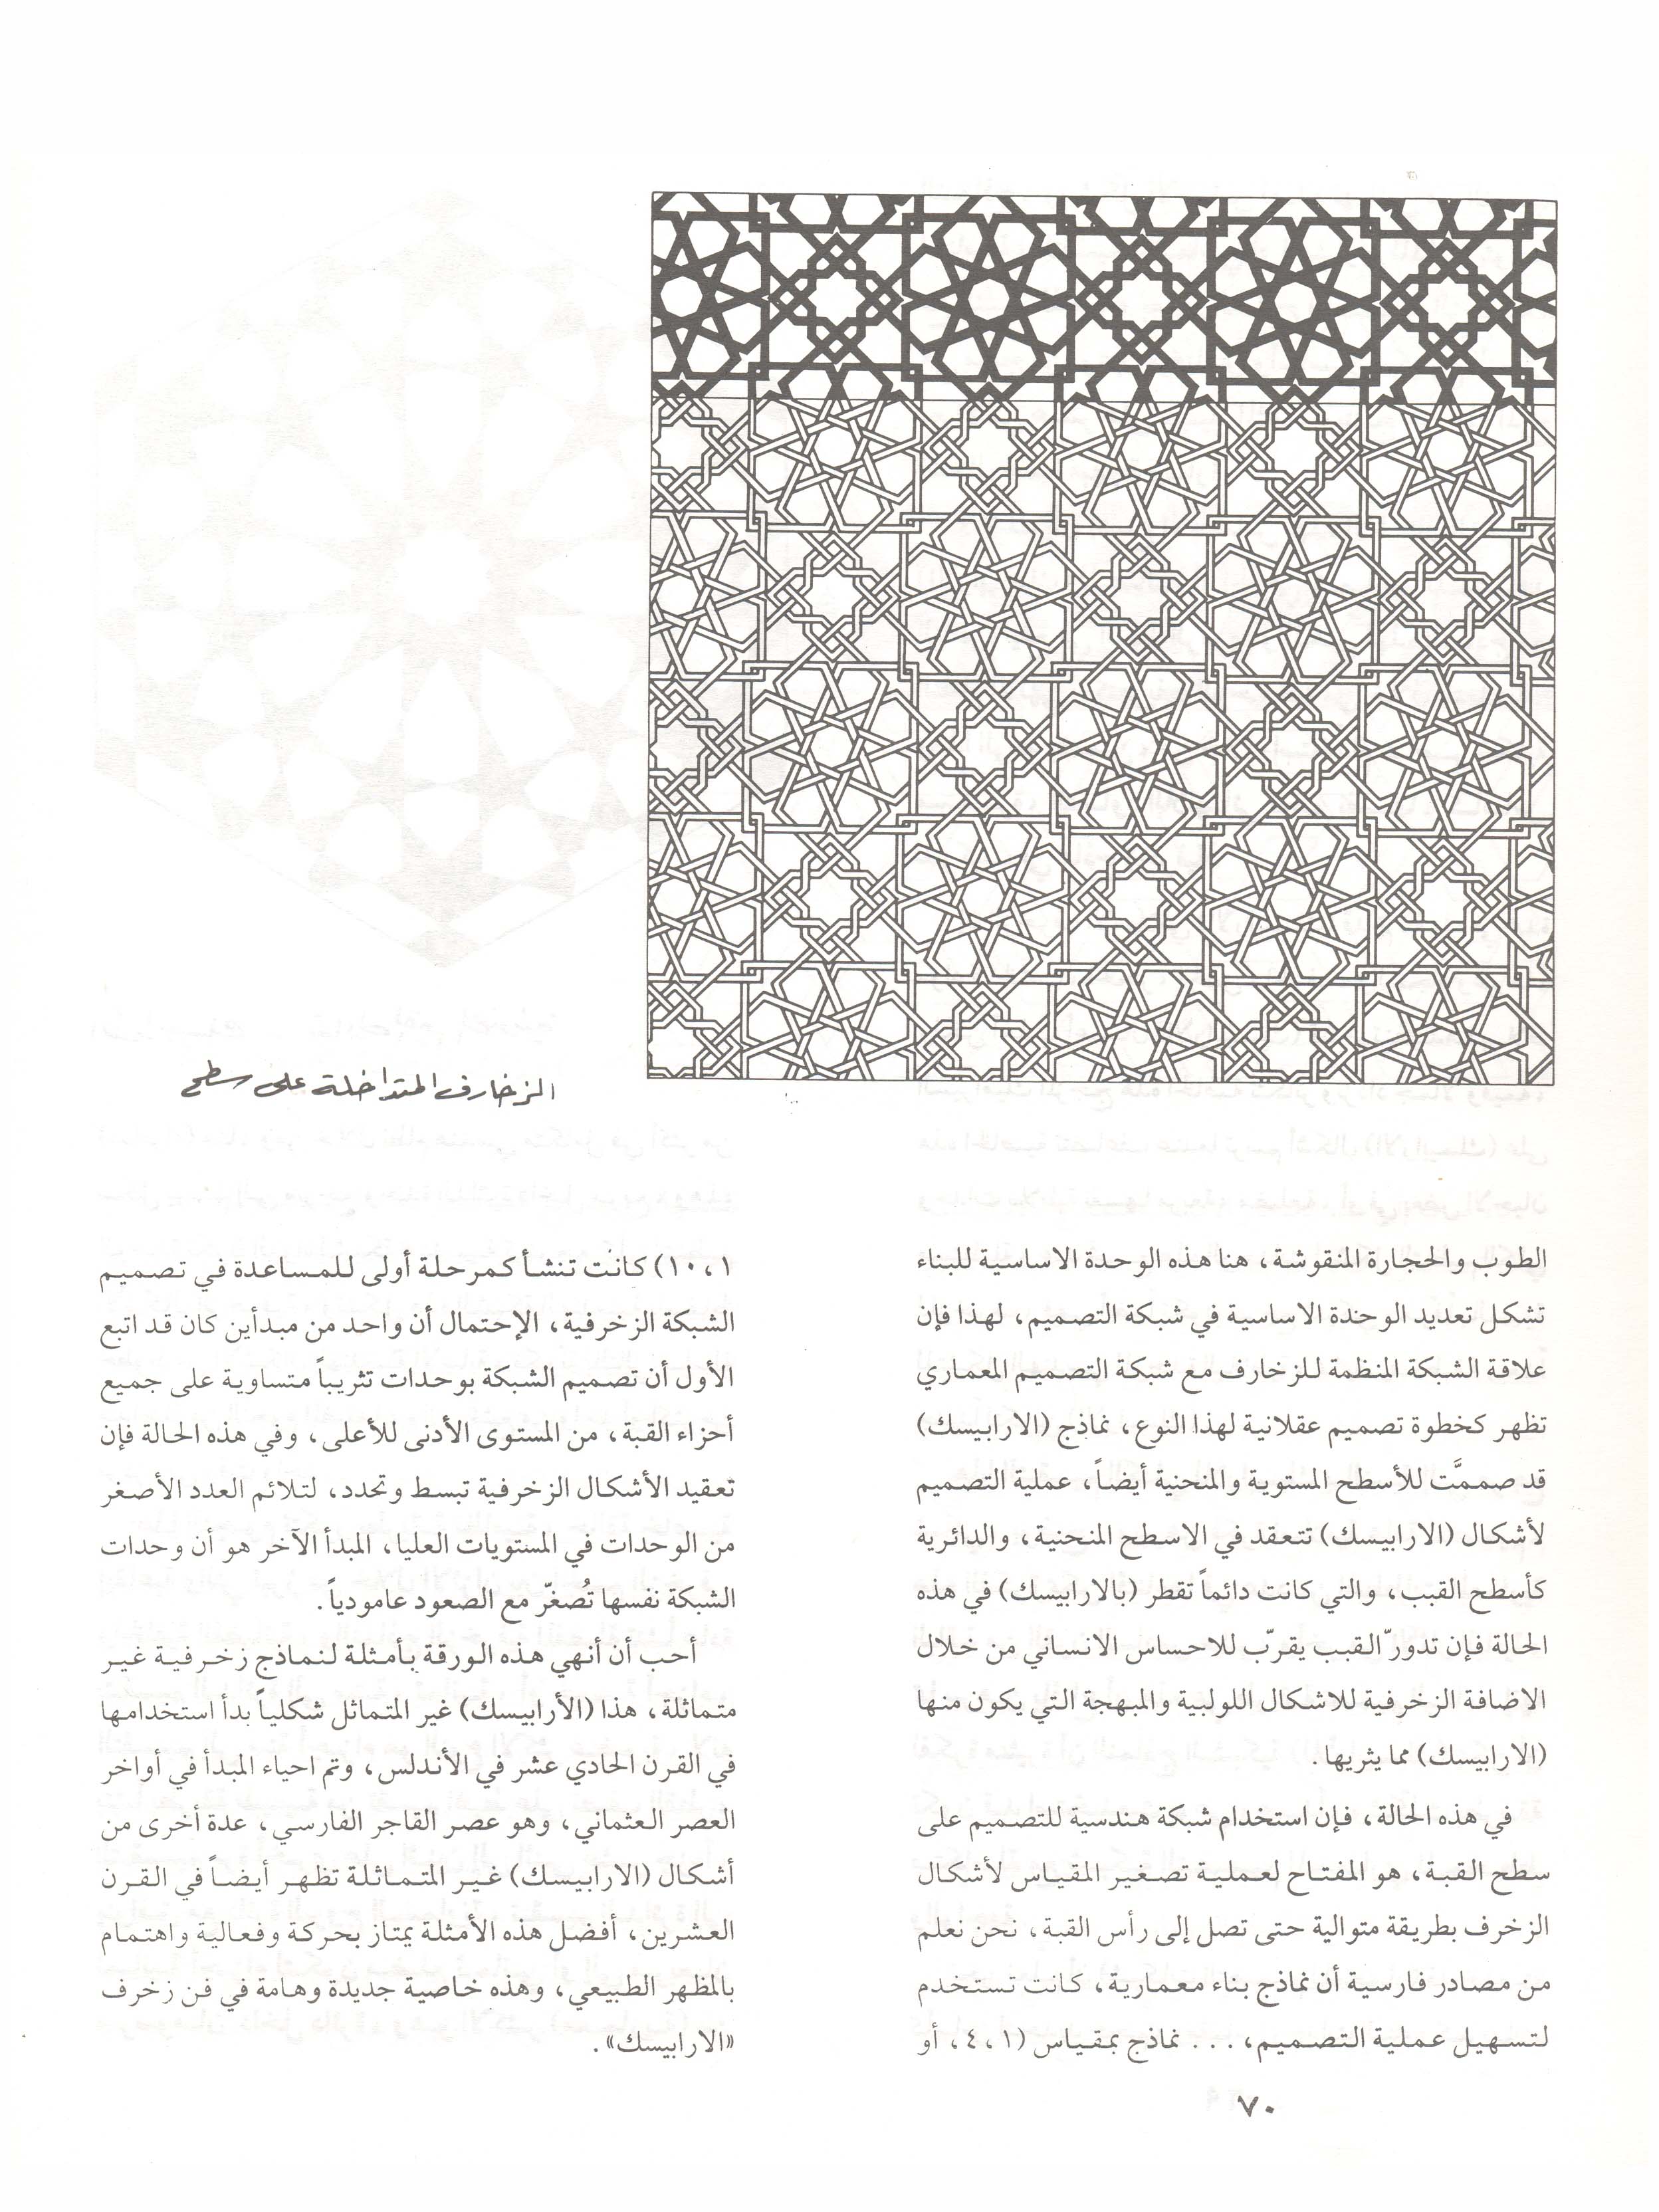 الزخارف المتداخلة على سطح
الطوب والحجارة المنقوشة، هنا هذه الوحدة الاساسية للبناء
تشكل تعديد الوحدة الاساسية في شبكة التصميم، لهذا فإن
علاقة الشبكة المنظمة للزخارف مع شبكة التصميم المعماري
تظهر كخطوة تصميم عقلانية لهذا النوع، نماذج (الارابيسك)
قد صممَّت للأسطح المستوية والمنحنية أيضاً، عملية التصميم
لأشكال (الارابيسك) تتعقد في الاسطح المنحنية، والدائرية
كأسطح القبب، والتي كانت دائماً تقطر (بالارابيسك) في هذه
الحالة فإن تدورّ القبب يقرّب للاحساس الانساني من خلال
الاضافة الزخرفية للاشكال اللولبية والمبهجة التي يكون منها
(الارابيسك) مما يثريها.
في هذه الحالة، فإن استخدام شبكة هندسية للتصميم على
سطح القبة، هو المفتاح لعملية تصغير المقياس لأشكال
الزخرف بطريقة متوالية حتى تصل إلى رأس القبة، نحن نعلم
من مصادر فارسية أن نماذج بناء معمارية، كانت تستخدم
لتسهيل عملية التصميم، ... نماذج بمقياس (١، ٤، أو
١، ١٠) كانت تنشأ كمرحلة أولى للمساعدة في تصميم
الشبكة الزخرفية، الإحتمال أن واحد من مبدأين كان قد اتبع
الأول أن تصميم الشبكة بوحدات تثريباً متساوية على جميع
أحزاء القبة، من المستوى الأدنى للأعلى، وفي هذه الحالة فإن
تعقيد الأشكال الزخرفية تبسط وتحدد، لتلائم العدد الأصغر
من الوحدات في المستويات العليا، المبدأ الآخر هو أن وحدات
الشبكة نفسها تُصغرّ مع الصعود عامودياً.
أحب أن أنهي هذه الورقة بأمثلة لنماذج زخرفية غير
متماثلة، هذا (الأرابيسك) غير المتماثل شكلياً بدأ استخدامها
في القرن الحادي عشر في الأندلس، وتم احياء المبدأ في أواخر
العصر العثماني، وهو عصر القاجر الفارسي، عدة أخرى من
أشكال (الارابيسك) غير المتماثلة تظهر أيضاً في القرن
العشرين، أفضل هذه الأمثلة يمتاز بحركة وفعالية واهتمام
بالمظهر الطبيعي، وهذه خاصية جديدة وهامة في فن زخرف
«الارابيسك».
٧٠